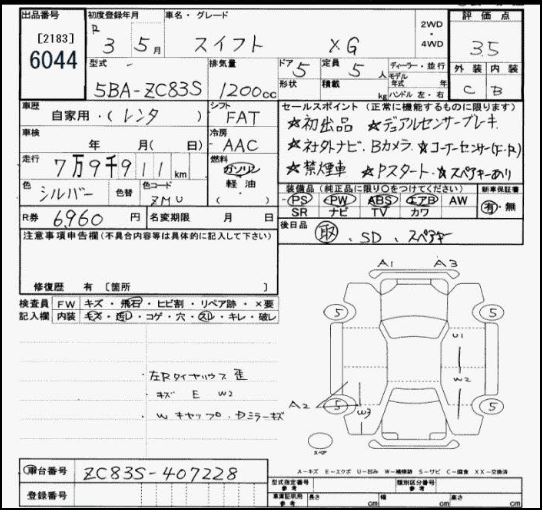 出品番号 初度登録年月 車名・グレード 2WD・4WD 評価点
[2183] R 3年 5月 スイフト XG 3.5
6044 型式 排気量 ドア 定員 ディーラー・並行 外装 内装
5BA-ZC83S 1200cc 5 5人 C B
形状 積載 kg モデル年式 年 ハンドル 左・右
車歴 自家用・(レンタ) シフト FAT セールスポイント (正常に機能するものに限ります)
車検 年 月( 日) 冷房 AAC ★初出品 ★デュアルセンサーブレーキ
走行 7万9千911km 燃料 ガソリン 軽油 ( ) ★社外ナビ、Bカメラ ★コーナーセンサー(F・R)
★禁煙車 ★Pスタート ★スペアキーあり
色 シルバー 色替 色コード ZMU 装備品 (純正品に限り○をつけてください) 新車保証書
PS PW ABS エアB AW 有・無
SR ナビ TV カワ
R券 6960円 名変期限 月 日 後日品 取、SD、スペアキー
注意事項申告欄(不具合内容等は具体的に記入して下さい)
修復歴 有[箇所 ]
検査員 FW キズ・飛石・ヒビ割・リペア跡・×要
記入欄 内装 キズ・汚レ・コゲ・穴・スレ・キレ・破レ
A1 A3
5 5
U1
W2
左Rタイヤハウス 歪
キズ E W2
Wキャップ・Dミラーキズ
A2 5 W3 5
スペア
A-キズ E-エクボ U-凹み W-補修跡 S-サビ C-腐食 XX-交換済
車台番号 ZC83S-407228
登録番号
型式指定番号 参考 類別区分番号 参考
車庫証明用 参考 長さ cm 幅 cm 高さ cm